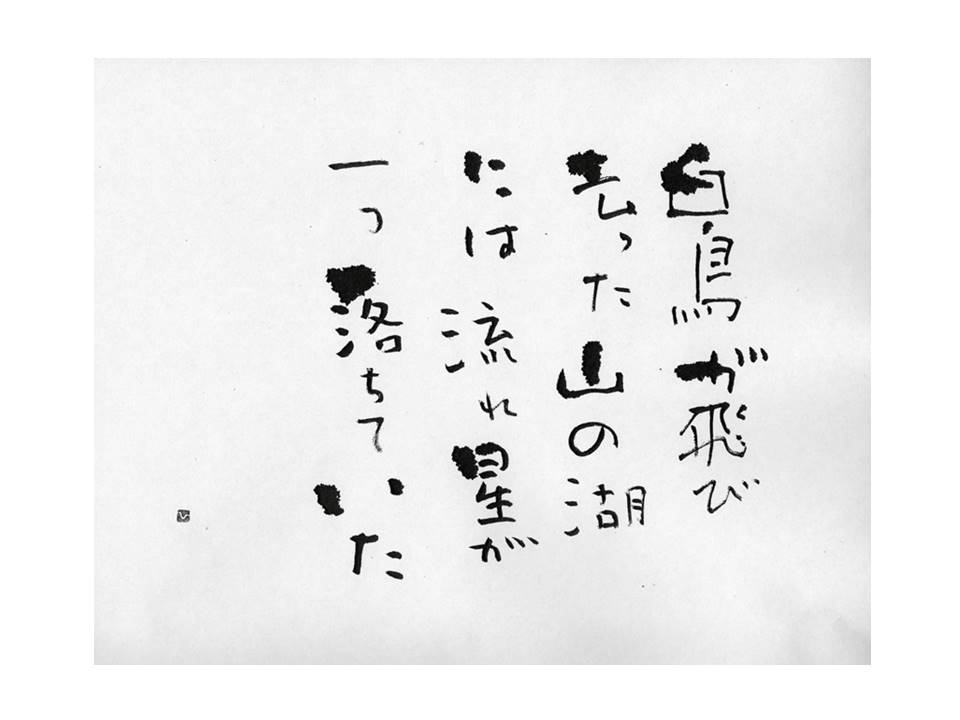 白鳥が飛び
去った山の湖
には流れ星が
一つ落ちて
いた